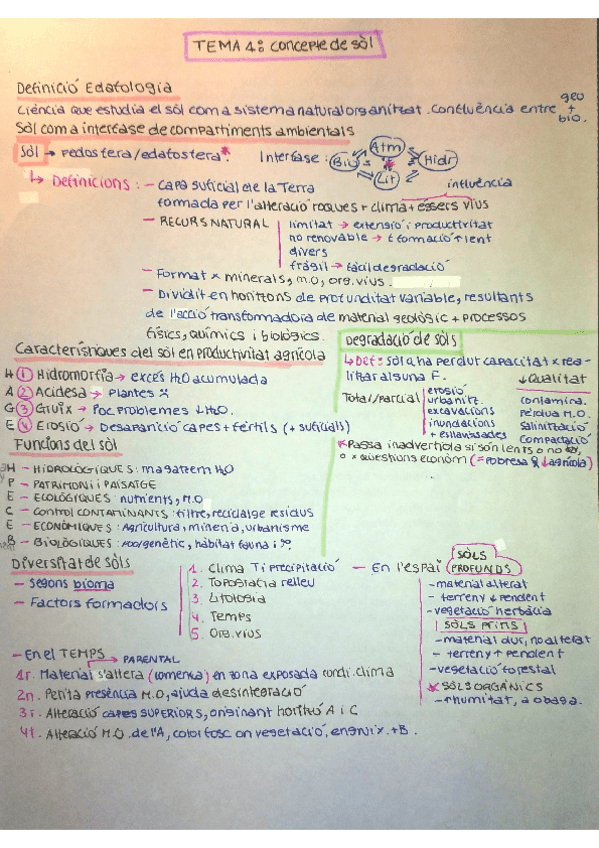 TEMA 1: concepte de sòl
Definició Edafologia
Ciència que estudia el sòl com a sistema natural organitzat. Confluència entre geo + bio.
Sòl com a interfase de compartiments ambientals
Sòl → Pedosfera/edafosfera* Interfase: Bio Atm Hidr Lit
↳ Definicions: - Capa suficial de la Terra
formada per l'alteració roques + clima + éssers vius
influència
- RECURS NATURAL
limitat → extensió i productivitat
no renovable → t formació ↑ lent
divers
fràgil → fàcil degradació
- Format x minerals, M.O, org. vius.
- Dividit en horitzons de profunditat variable, resultants
de l'acció transformadora de material geològic + processos
físics, químics i biològics.
Característiques del sòl en productivitat agrícola
H ① Hidromorfia → excés H2O acumulada
A ② Acidesa → Plantes X
G ③ Gruix → Poc problemes ↓H2O.
E ④ Erosió → Desaparició capes + fèrtils (+ suficials)
Degradació de sòls
↳ Def: Sòl q ha perdut capacitat x rea-
litzar alguna F.
Total/parcial
erosió
urbanitz.
excavacions
inundacions
+ esllavissades
↓ Qualitat
contamina.
Pèrdua M.O.
Salinització
Compactació
* Passa inadvertida si són lents o no
o x qüestions econòm (= pobresa ↓agrícola)
Funcions del sòl
H - HIDROLÒGIQUES: magatzem H2O
P - PATRIMONI i PAISATGE
E - ECOLÒGIQUES: nutrients, M.O
C - CONTROL CONTAMINANTS: filtre, reciclatge residus
E - ECONÒMIQUES: Agricultura, mineria, urbanisme
B - BIOLÒGIQUES: genètic, hàbitat fauna i
Diversitat de sòls
- Segons bioma
- Factors formadors
1. Clima T i precipitació
2. Topografia relleu
3. Litologia
4. Temps
5. Org. vius
- En l'espai
SÒLS PROFUNDS
- material alterat
- terreny ↓ pendent
- vegetació herbàcia
SÒLS PRIMS
- material dur, no alterat
- terreny ↑ pendent
- vegetació forestal
* SÒLS ORGÀNICS
- ↑ humitat, a obaga.
- En el TEMPS
→ PARENTAL
1r. Material s'altera (comença) en zona exposada condi. clima
2n. Petita presència M.O, ajuda desintegració
3r. Alteració capes SUPERIORS, originant horitzó A i C
4t. Alteració M.O. de l'A, color fosc on vegetació, engruix. + B.